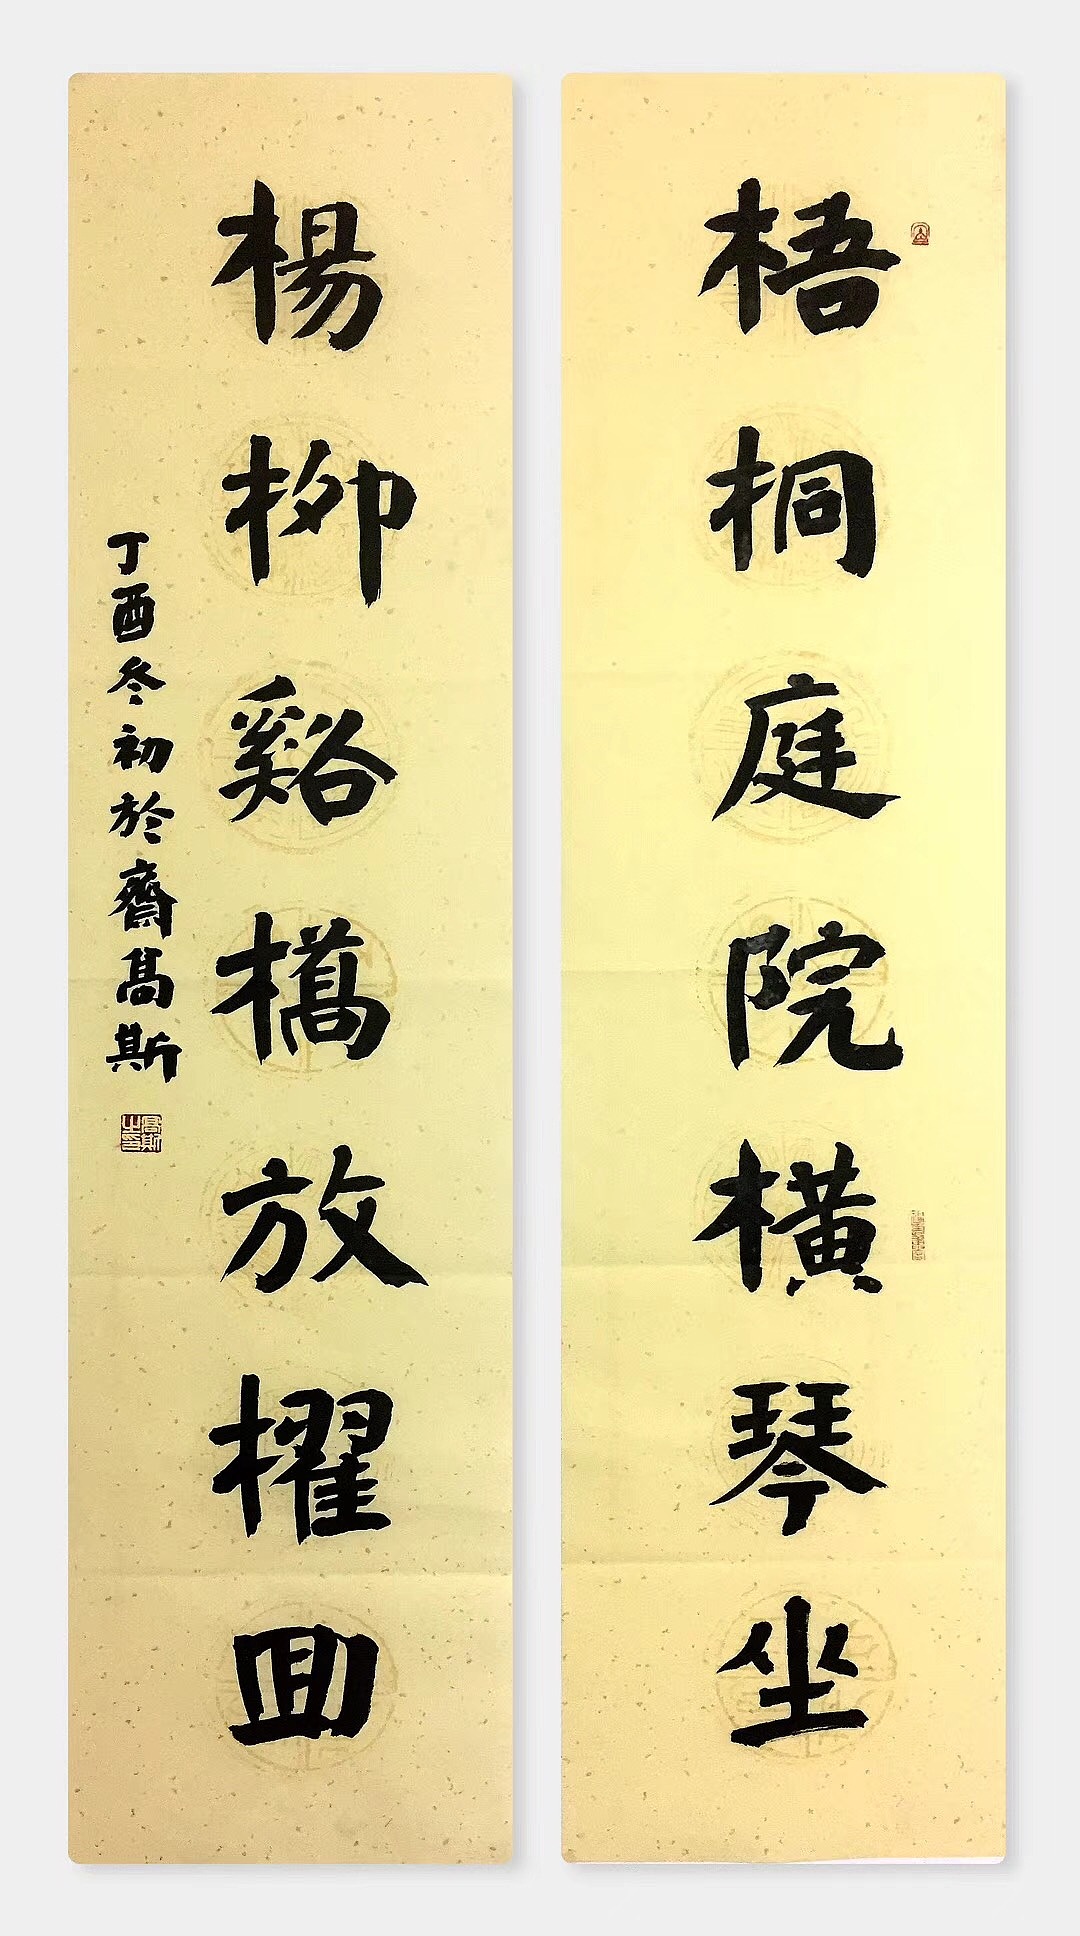 梧桐庭院橫琴坐
楊柳谿橋放櫂回
丁酉冬初於齋高斯
高斯之印